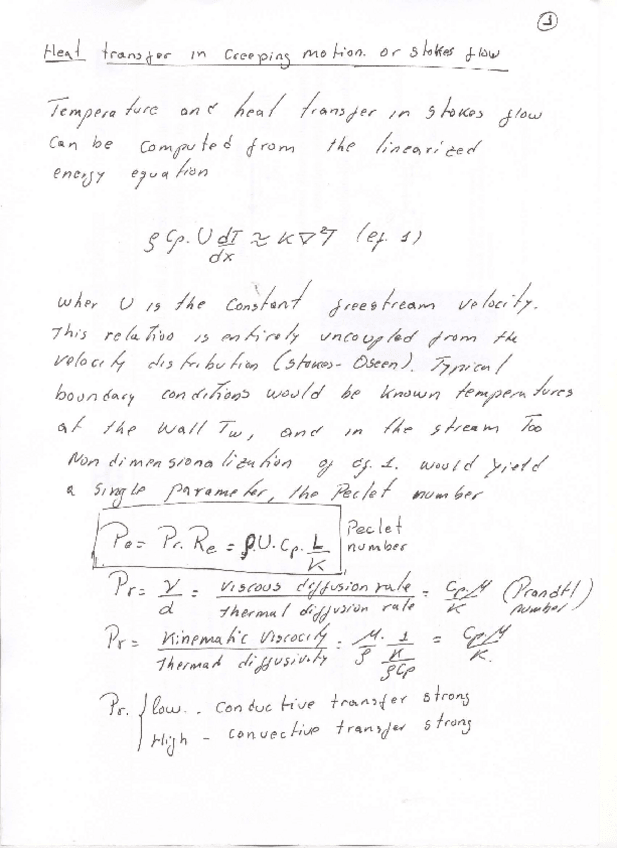 1
Heat transfer in Creeping motion or stokes flow
Temperature and heat transfer in stokes flow
Can be computed from the linearized
energy equation
ρ Cp. U dT/dx ≈ K ∇²T (eq. 1)
wher U is the constant freestream velocity.
This relatioo is entirely uncoupled from the
velocity distribution (stokes-Oseen). Typical
boundary conditions would be known temperatures
at the wall Tw, and in the stream Too
Non dimensionalization of eq. 1. would yield
a single parameter, the Peclet number
Pe = Pr. Re = ρ.U. Cp. L/K Peclet number
Pr = ν/α = viscous diffusion rate / thermal diffusion rate = Cp μ/K (Prandtl number)
Pr = Kinematic Viscocity / Thermal diffusivity = μ/ρ . 1/(K/ρCp) = Cp μ/K.
Pr. { low - conductive transfer strong
High - convective transfer strong